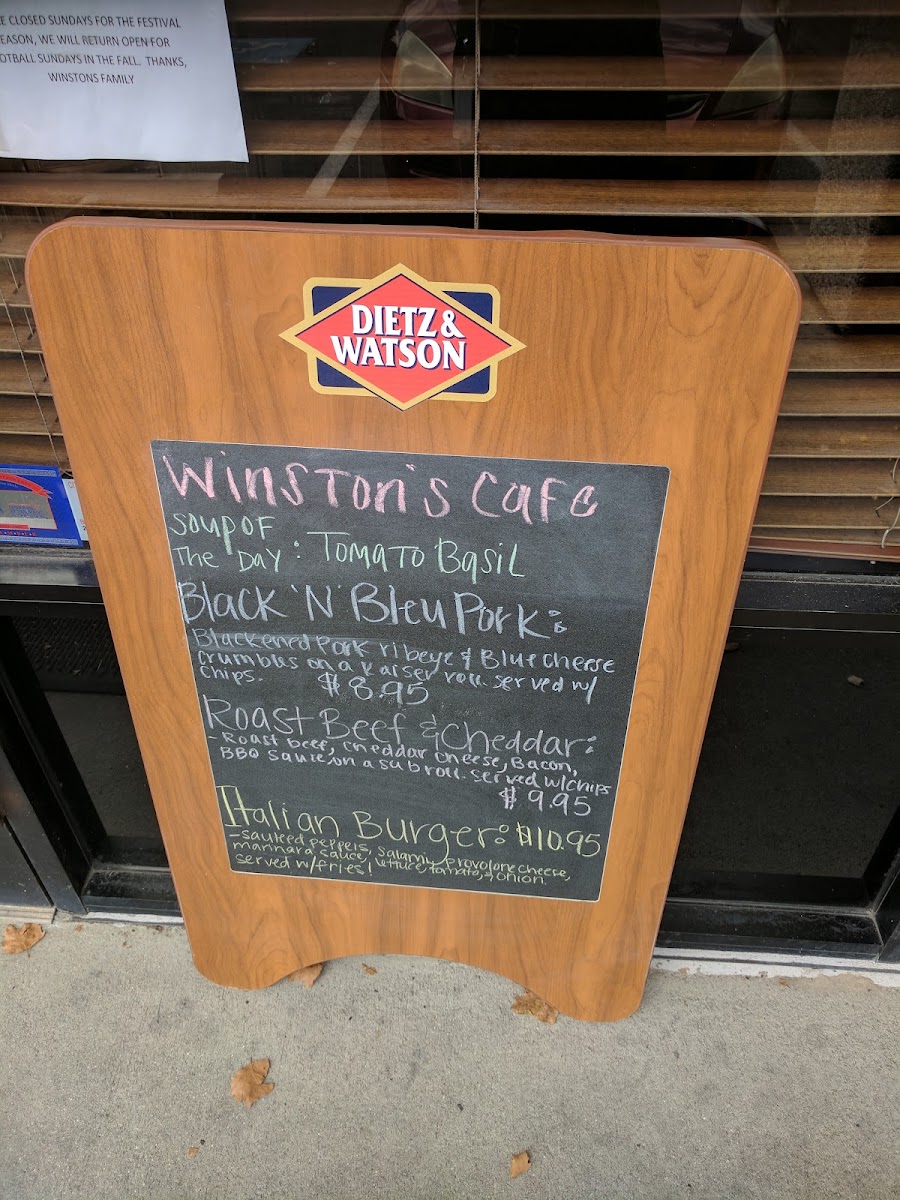 E CLOSED SUNDAYS FOR THE FESTIVAL
EASON, WE WILL RETURN OPEN FOR
OTBALL SUNDAYS IN THE FALL. THANKS,
WINSTONS FAMILY
DIETZ &
WATSON
Winston's Cafe
Soup of
The Day : Tomato Basil
Black 'N' Bleu Pork:
Blackened Pork ribeye & Blue cheese
crumbles on a Kaiser roll. served w/
chips. $8.95
Roast Beef & Cheddar:
- Roast beef, cheddar cheese, Bacon,
BBQ sauce, on a sub roll. served w/chips
$9.95
Italian Burger: $10.95
- sauteed peppers, salami, provolone cheese,
marinara sauce, lettuce, tomato, & onion.
served w/fries!